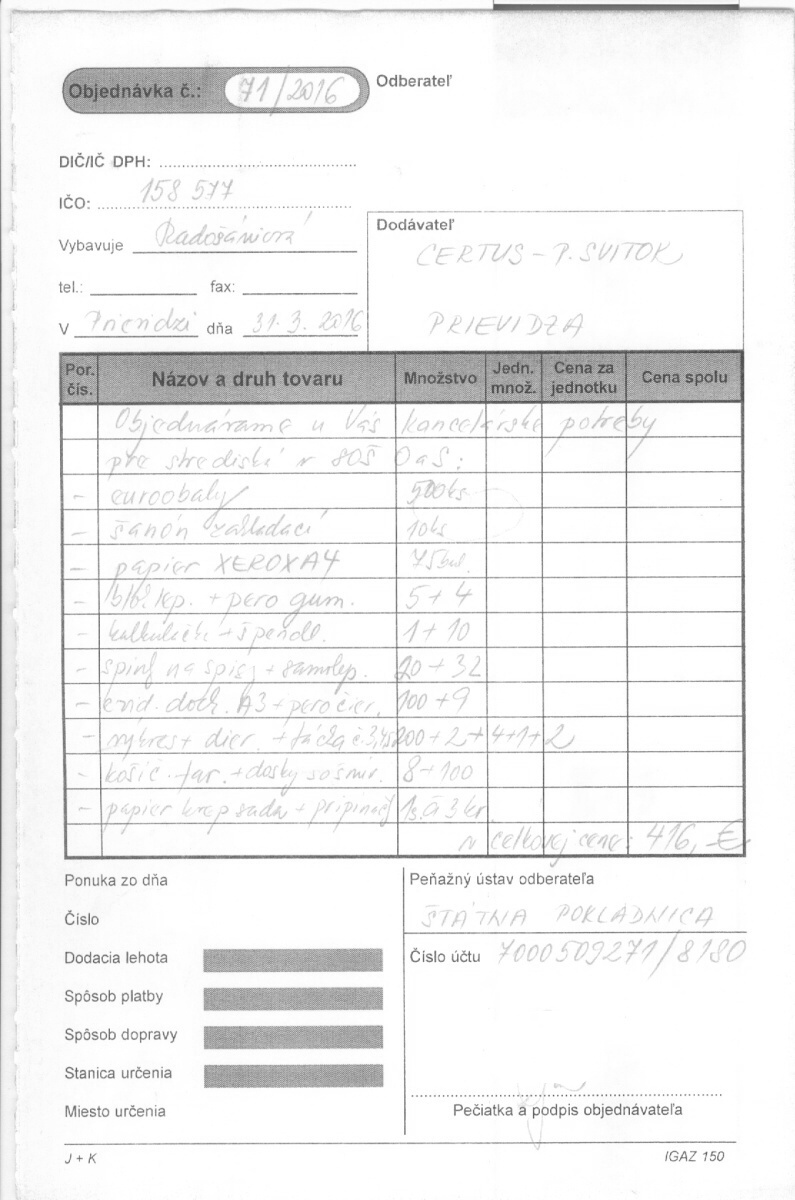 Objednávka č.: 71/2016
Odberateľ
DIČ/IČ DPH:
IČO: 158 577
Vybavuje Radošániová
tel.: fax:
V Prievidzi dňa 31.3. 2016
Dodávateľ
CERTUS - P. SVITOK
PRIEVIDZA
Por. čís. Názov a druh tovaru Množstvo Jedn. množ. Cena za jednotku Cena spolu
Objednávame u Vás kancelárske potreby
pre strediská v SOŠ OaS:
- euroobaly 500ks
- šanón zakladací 10ks
- papier XEROXA4 75bal.
- lep. + pero gum. 5 + 4
- + špendl. 1 + 10
- na spisy + samolep. 20 + 32
- evid. doch. A3 + pero čier. 100 + 9
- výkres + dier. + 200 + 2 + 4 + 1 + 2
- košíč. far. + dosky so šnúr. 8 + 100
- papier krep sada + pripináč 3 kr.
v celkovej cene: 416,-€
Ponuka zo dňa
Číslo
Dodacia lehota
Spôsob platby
Spôsob dopravy
Stanica určenia
Miesto určenia
Peňažný ústav odberateľa
ŠTÁTNA POKLADNICA
Číslo účtu 7000509271/8180
Pečiatka a podpis objednávateľa
J + K
IGAZ 150